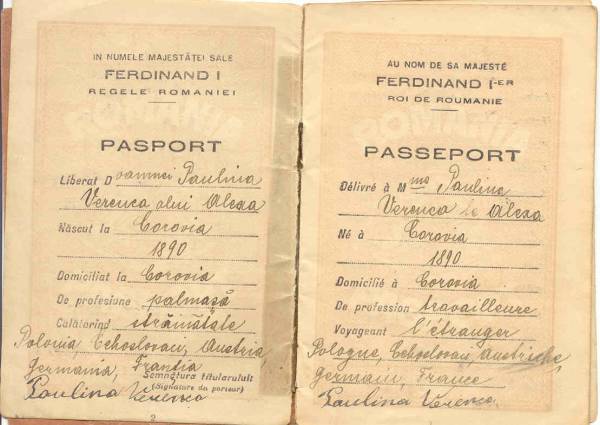 IN NUMELE MAJESTĂȚEI SALE
FERDINAND I
REGELE ROMANIEI
PASPORT
Liberat Doamnei Paulina
Verenca alui Alexa
Născut la Corovia
1890
Domiciliat la Corovia
De profesiune palmașă
Călătorind străinătate
Polonia, Cehoslovaci, Austria,
Germania, Frantia
Semnătura titularului
(Signature du porteur)
Paulina Verenca
2
AU NOM DE SA MAJESTÉ
FERDINAND I-ER
ROI DE ROUMANIE
PASSEPORT
Délivré à Mme Pauline
Verenca le Alexa
Né à Corovia
1890
Domicilié à Corovia
De profession travailleure
Voyageant l'étranger
Pologne, Cehoslovac, Autriche,
Germain, France
Paulina Verenca